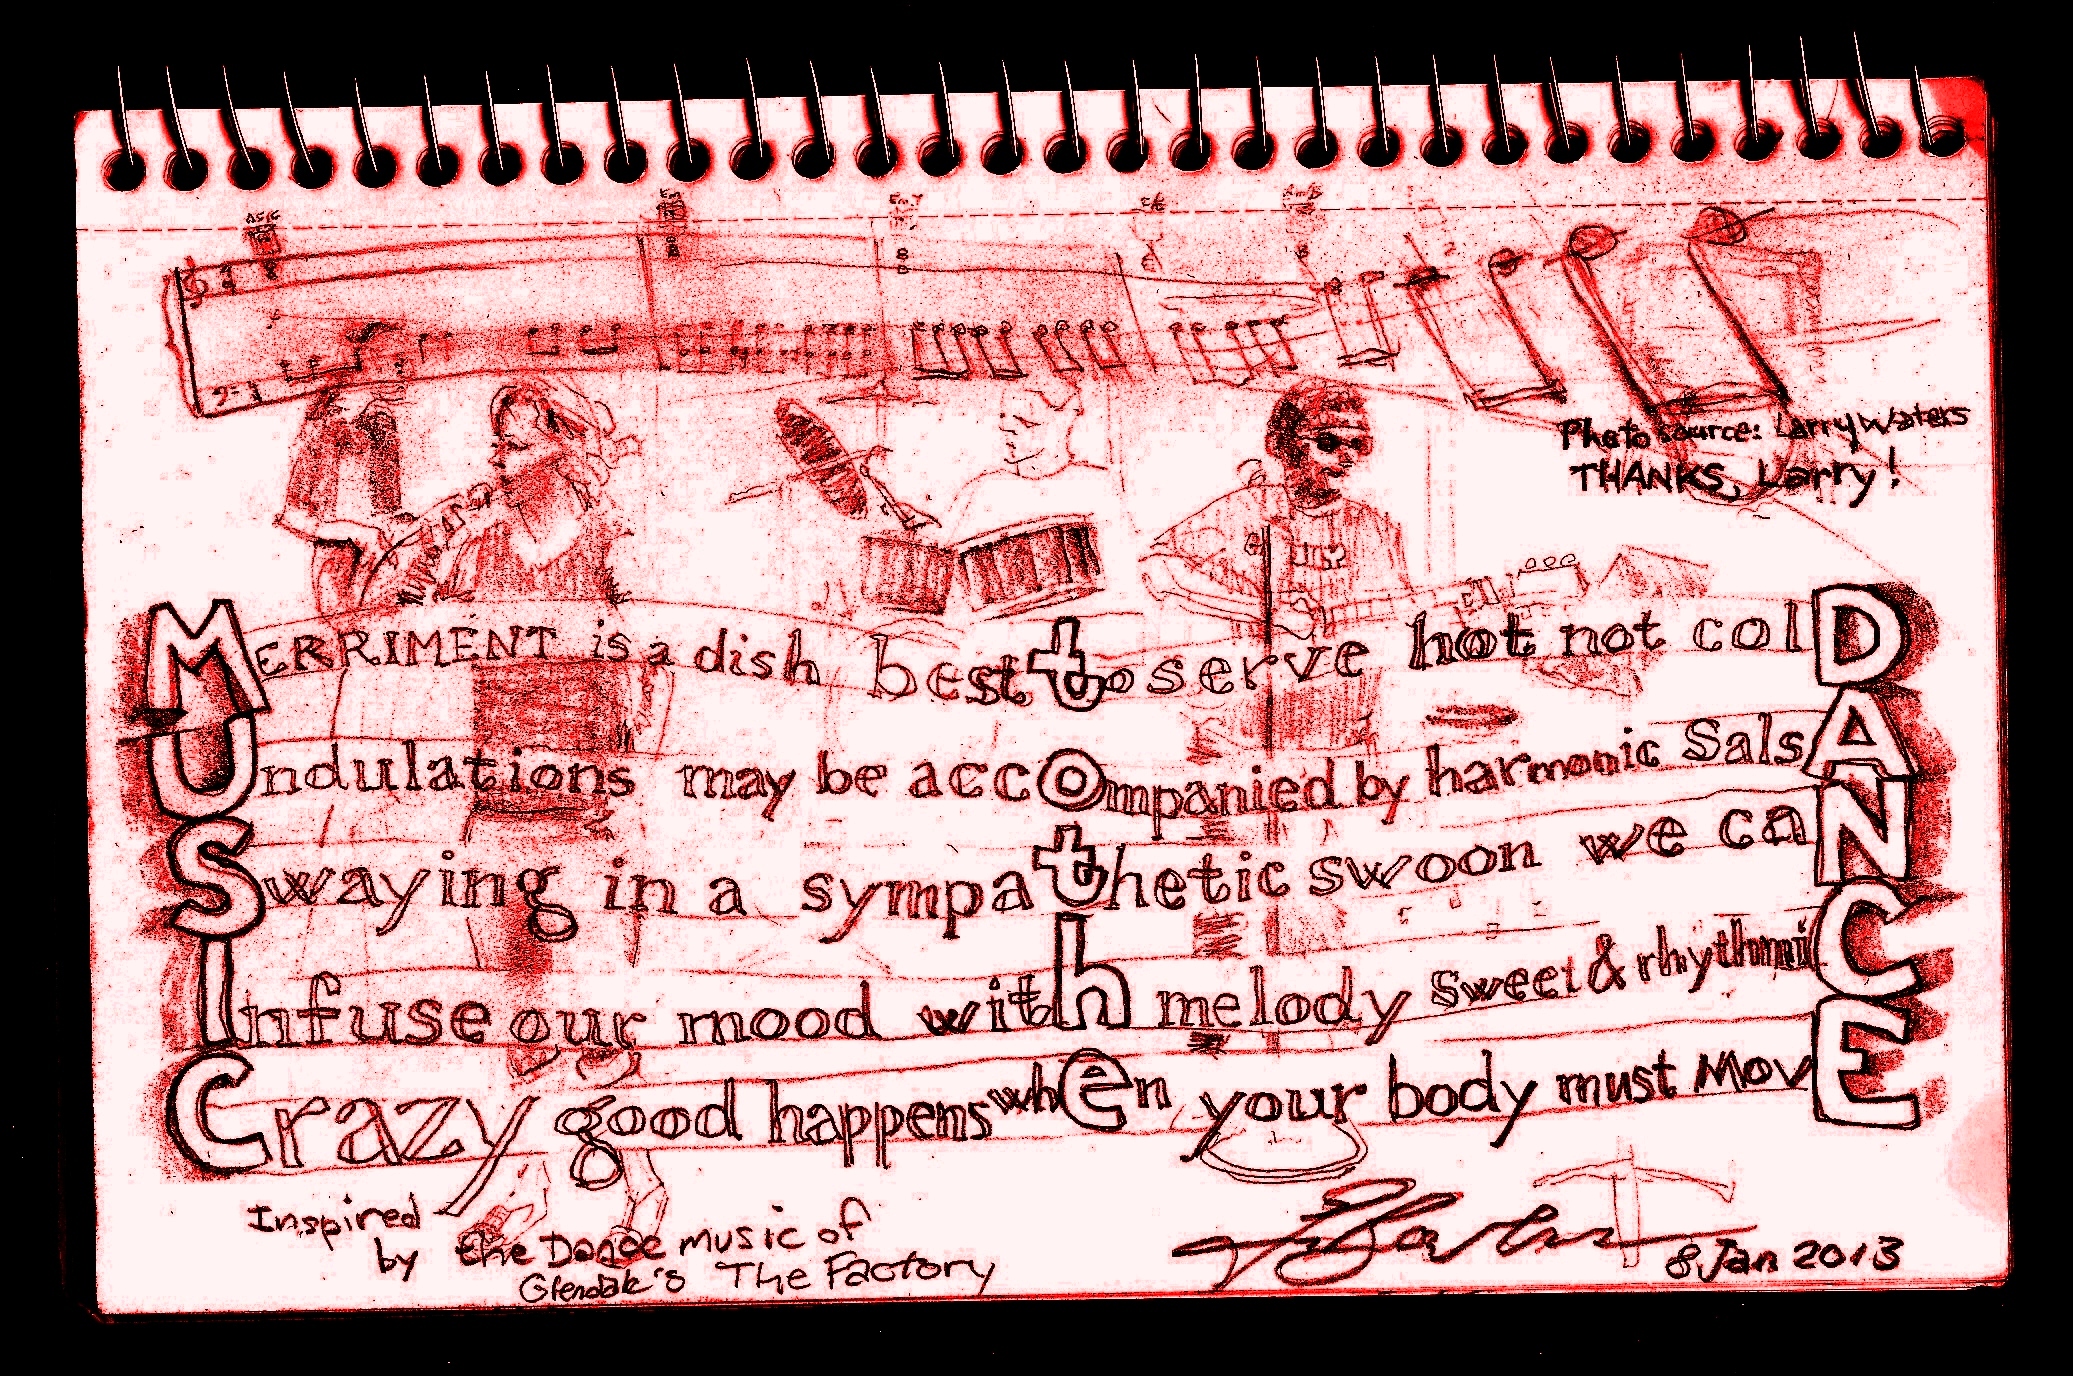 Photo source: Larry Waters
THANKS, Larry!
MERRIMENT is a dish best to serve hot not colD
Undulations may be accompanied by harmonic SalsA
Swaying in a sympathetic swoon we caN
Infuse our mood with melody sweet & rhythmiC
Crazy good happens when your body must MovE
Inspired
by the Dance music of
Glendale's The Factory
8 Jan 2013